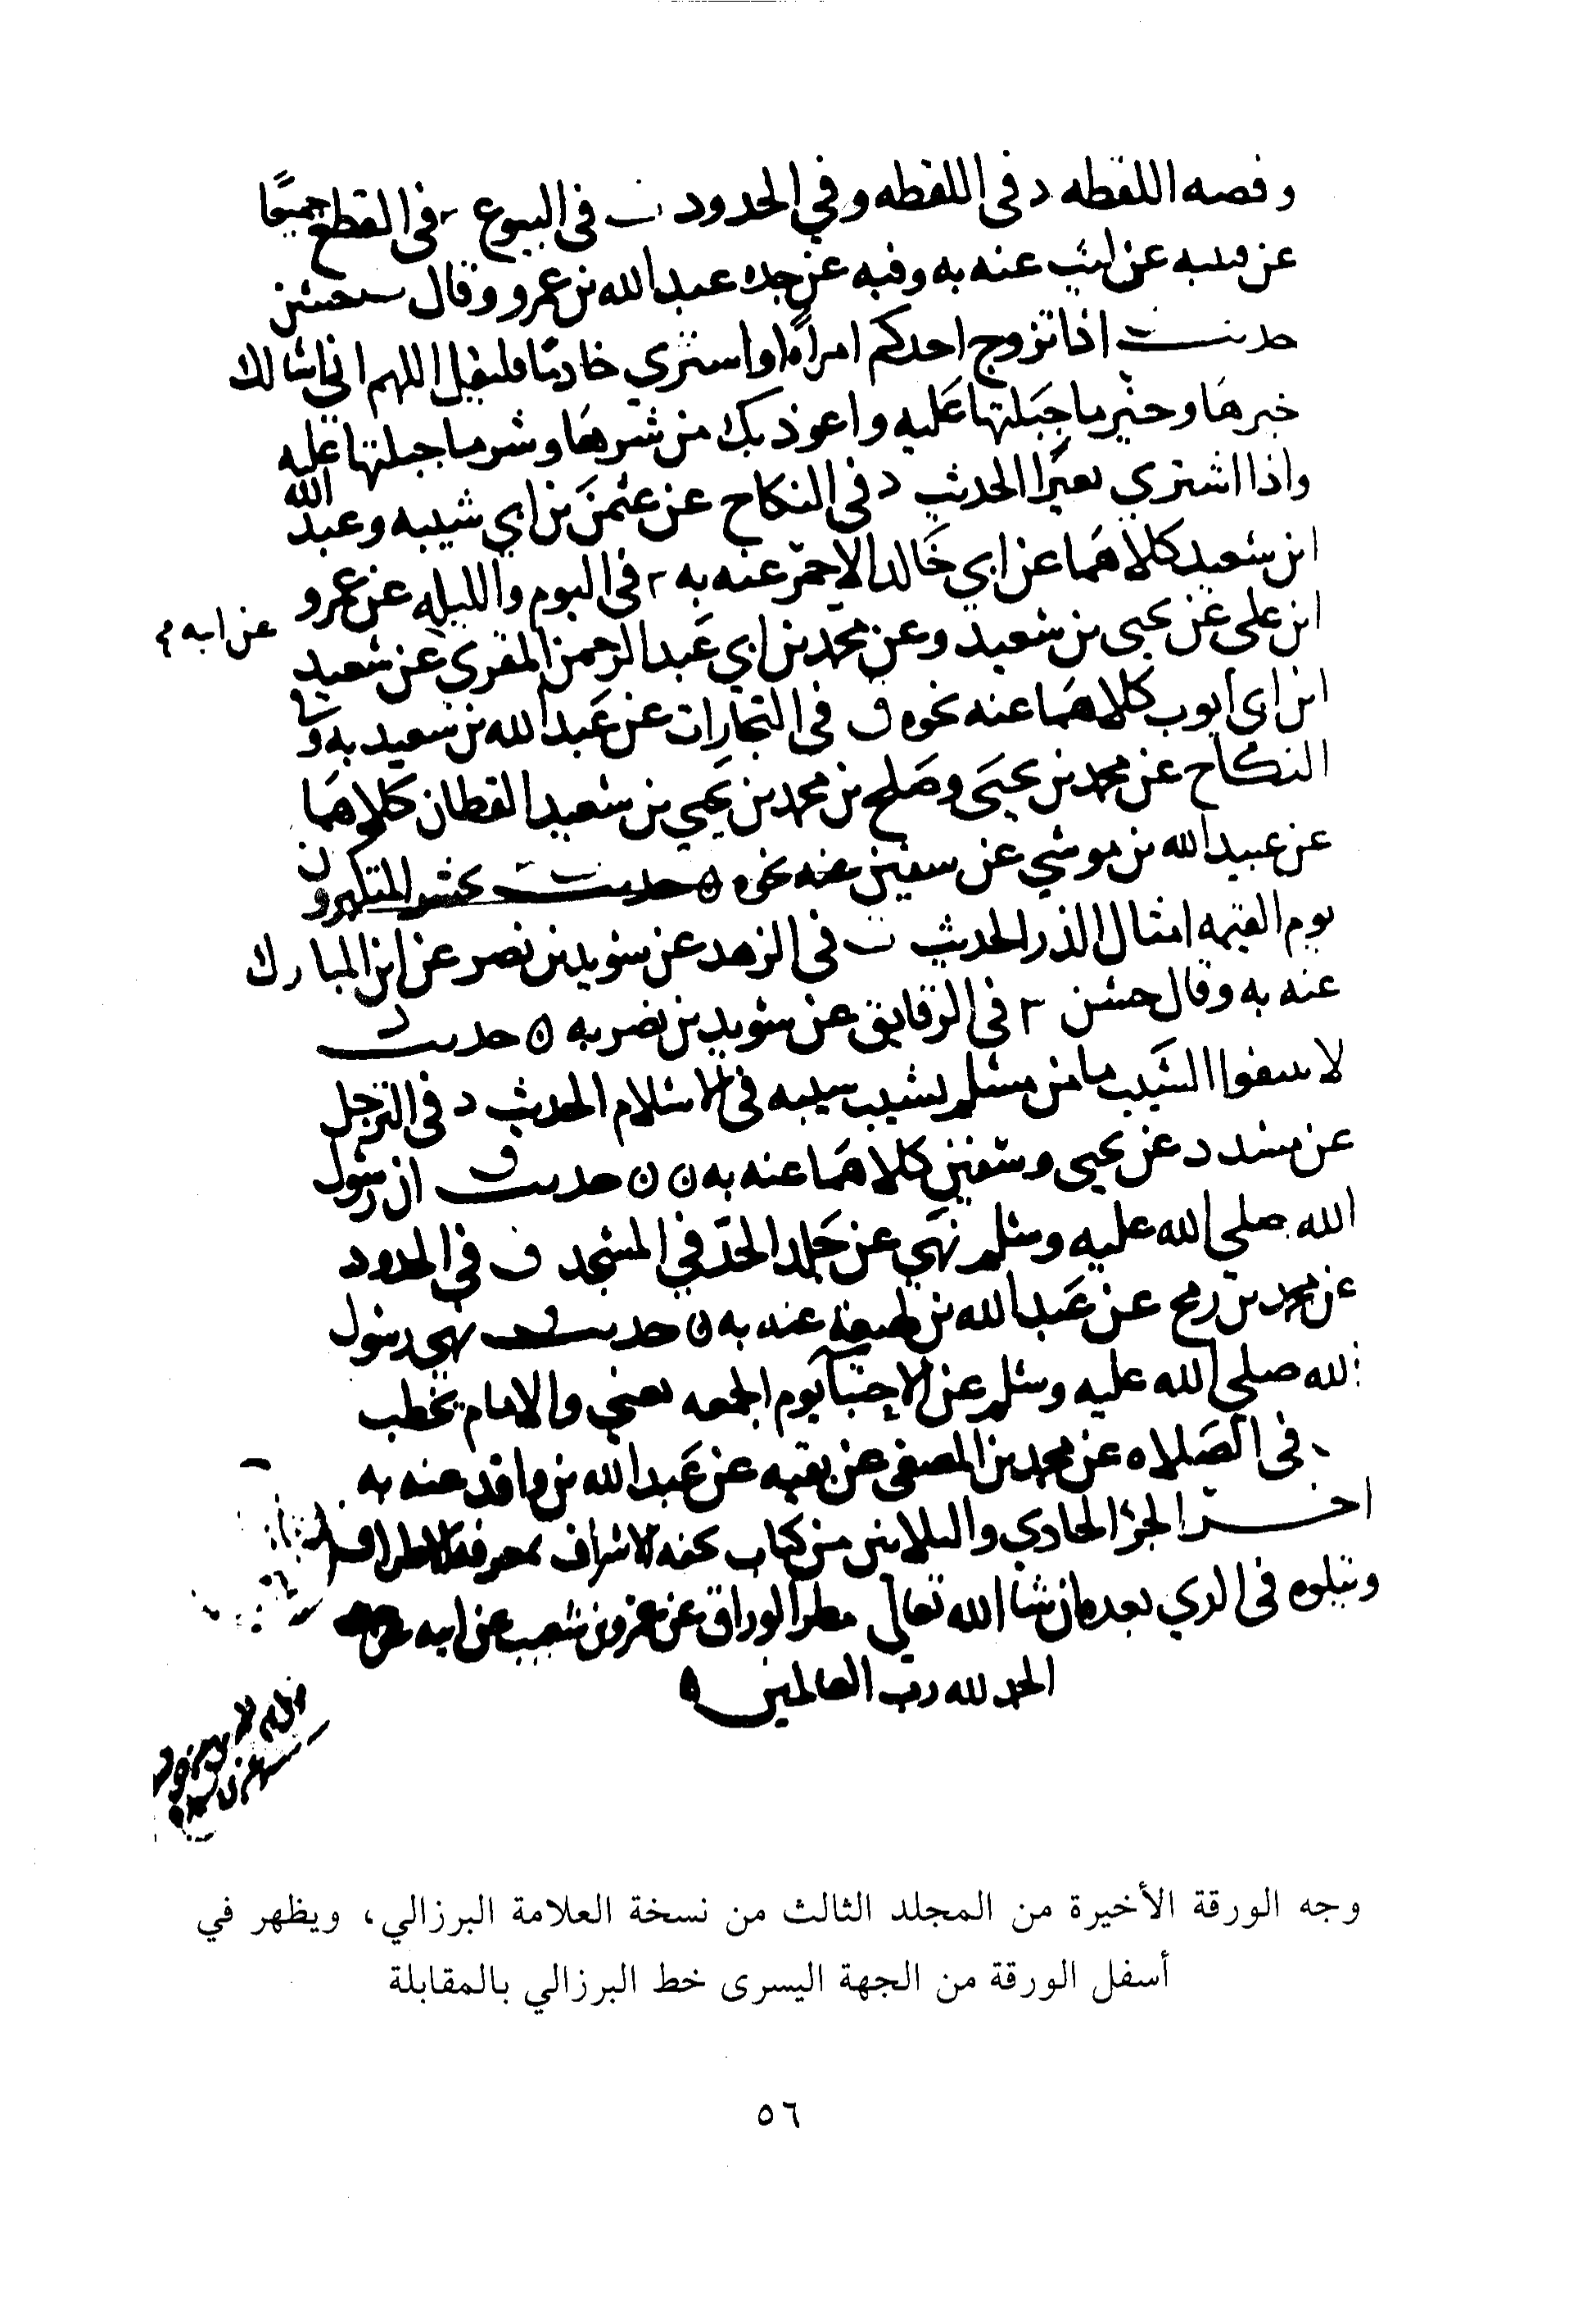 وقصه اللقطه د فى اللقطه وفي الحدود ت فى البيوع س فى القطع جميعًا
عن قتيبه عن ليث عنه به وفيه عن جده عبد الله بن عمرو وقال ت حسن
حديث اذا تزوج احدكم امراةً او اشتري خادمًا فليقل اللهم اني اسالك
خيرها وخير ما جبلتها عليه واعوذ بك من شرها وشر ما جبلتها عليه
واذا اشتري بعيرًا الحديث د فى النكاح عن عثمن بن ابي شيبه وعبد الله
ابن سعيد كلاهما عن ابي خالد الاحمر عنه به س فى اليوم والليله عن عمرو
ابن على عن يحيى بن سعيد وعن محمد بن ابي عبد الرحمن المقري عن سعيد عن ابيه
ابن ابى ايوب كلاهما عنه نحوه ق فى التجارات عن عبد الله بن سعيد به وفى
النكاح عن محمد بن يحيى وصلح بن محمد بن يحيي بن سعيد القطان كلاهما
عن عبيد الله بن موسي عن سفين عنه نحوه ه حديث يحشر المتكبرون
يوم القيمه امثال الذر الحديث ت فى الزهد عن سويد بن نصر عن ابن المبارك
عنه به وقال حسن س فى الرقايق عن سويد بن نصر به ه حديث د
لا تنتفوا الشيب ما من مسلم يشيب شيبه فى الاسلام الحديث د فى الترجل
عن مسدد عن يحيى وسفين كلاهما عنه به ن ن حديث ق ان رسول
الله صلي الله عليه وسلم نهي عن جلد الحد في المسجد ق فى الحدود
عن محمد بن رمح عن عبد الله بن لهيعة عنه به ه حديث ق نهي رسول
الله صلي الله عليه وسلم عن الاحتباء يوم الجمعه يعني والامام يخطب
ق فى الصلاه عن محمد بن المصفى عن بقيه عن عبد الله بن واقد عنه به
اخر الجزء الحادي والثلاثين من كتاب تحفه الاشراف بمعرفة الاطراف
ويتلوه فى الذي بعده ان شا الله تعالي مطر الوراق عن عمرو بن شعيب عن ابيه
الحمد لله رب العالمين ه
وجه الورقة الأخيرة من المجلد الثالث من نسخة العلامة البرزالي، ويظهر في
أسفل الورقة من الجهة اليسرى خط البرزالي بالمقابلة
٥٦